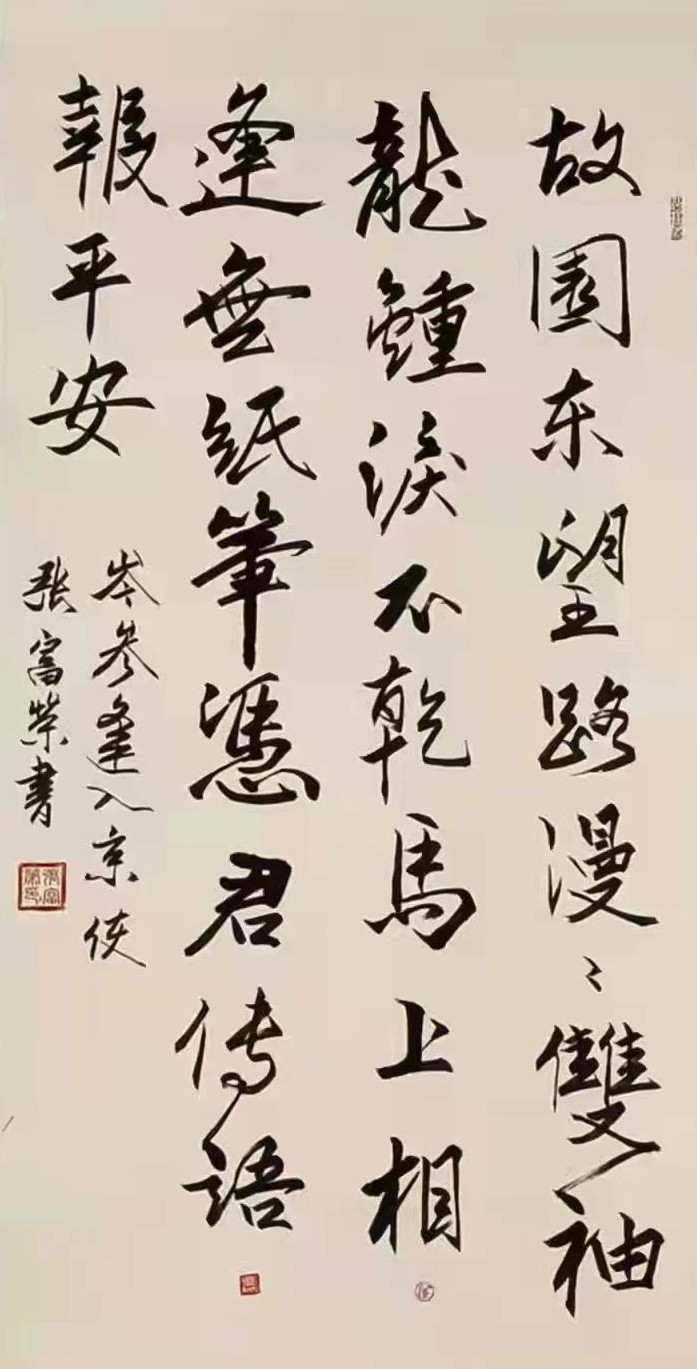 故園东望路漫〻雙袖
龍鍾淚不乾馬上相
逢無紙筆憑君传語
報平安
岑参逢入京使
張富榮书